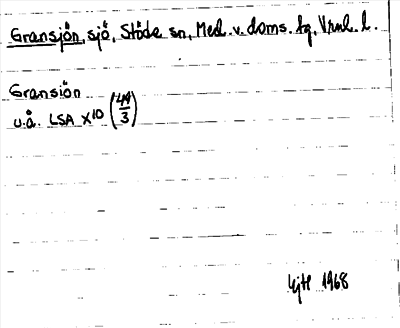 Gransjön, sjö, Stöde sn, Med. v. doms. tg, Vrnl. l.
Gransiön
u.å. LSA X10 (44/3)
1968